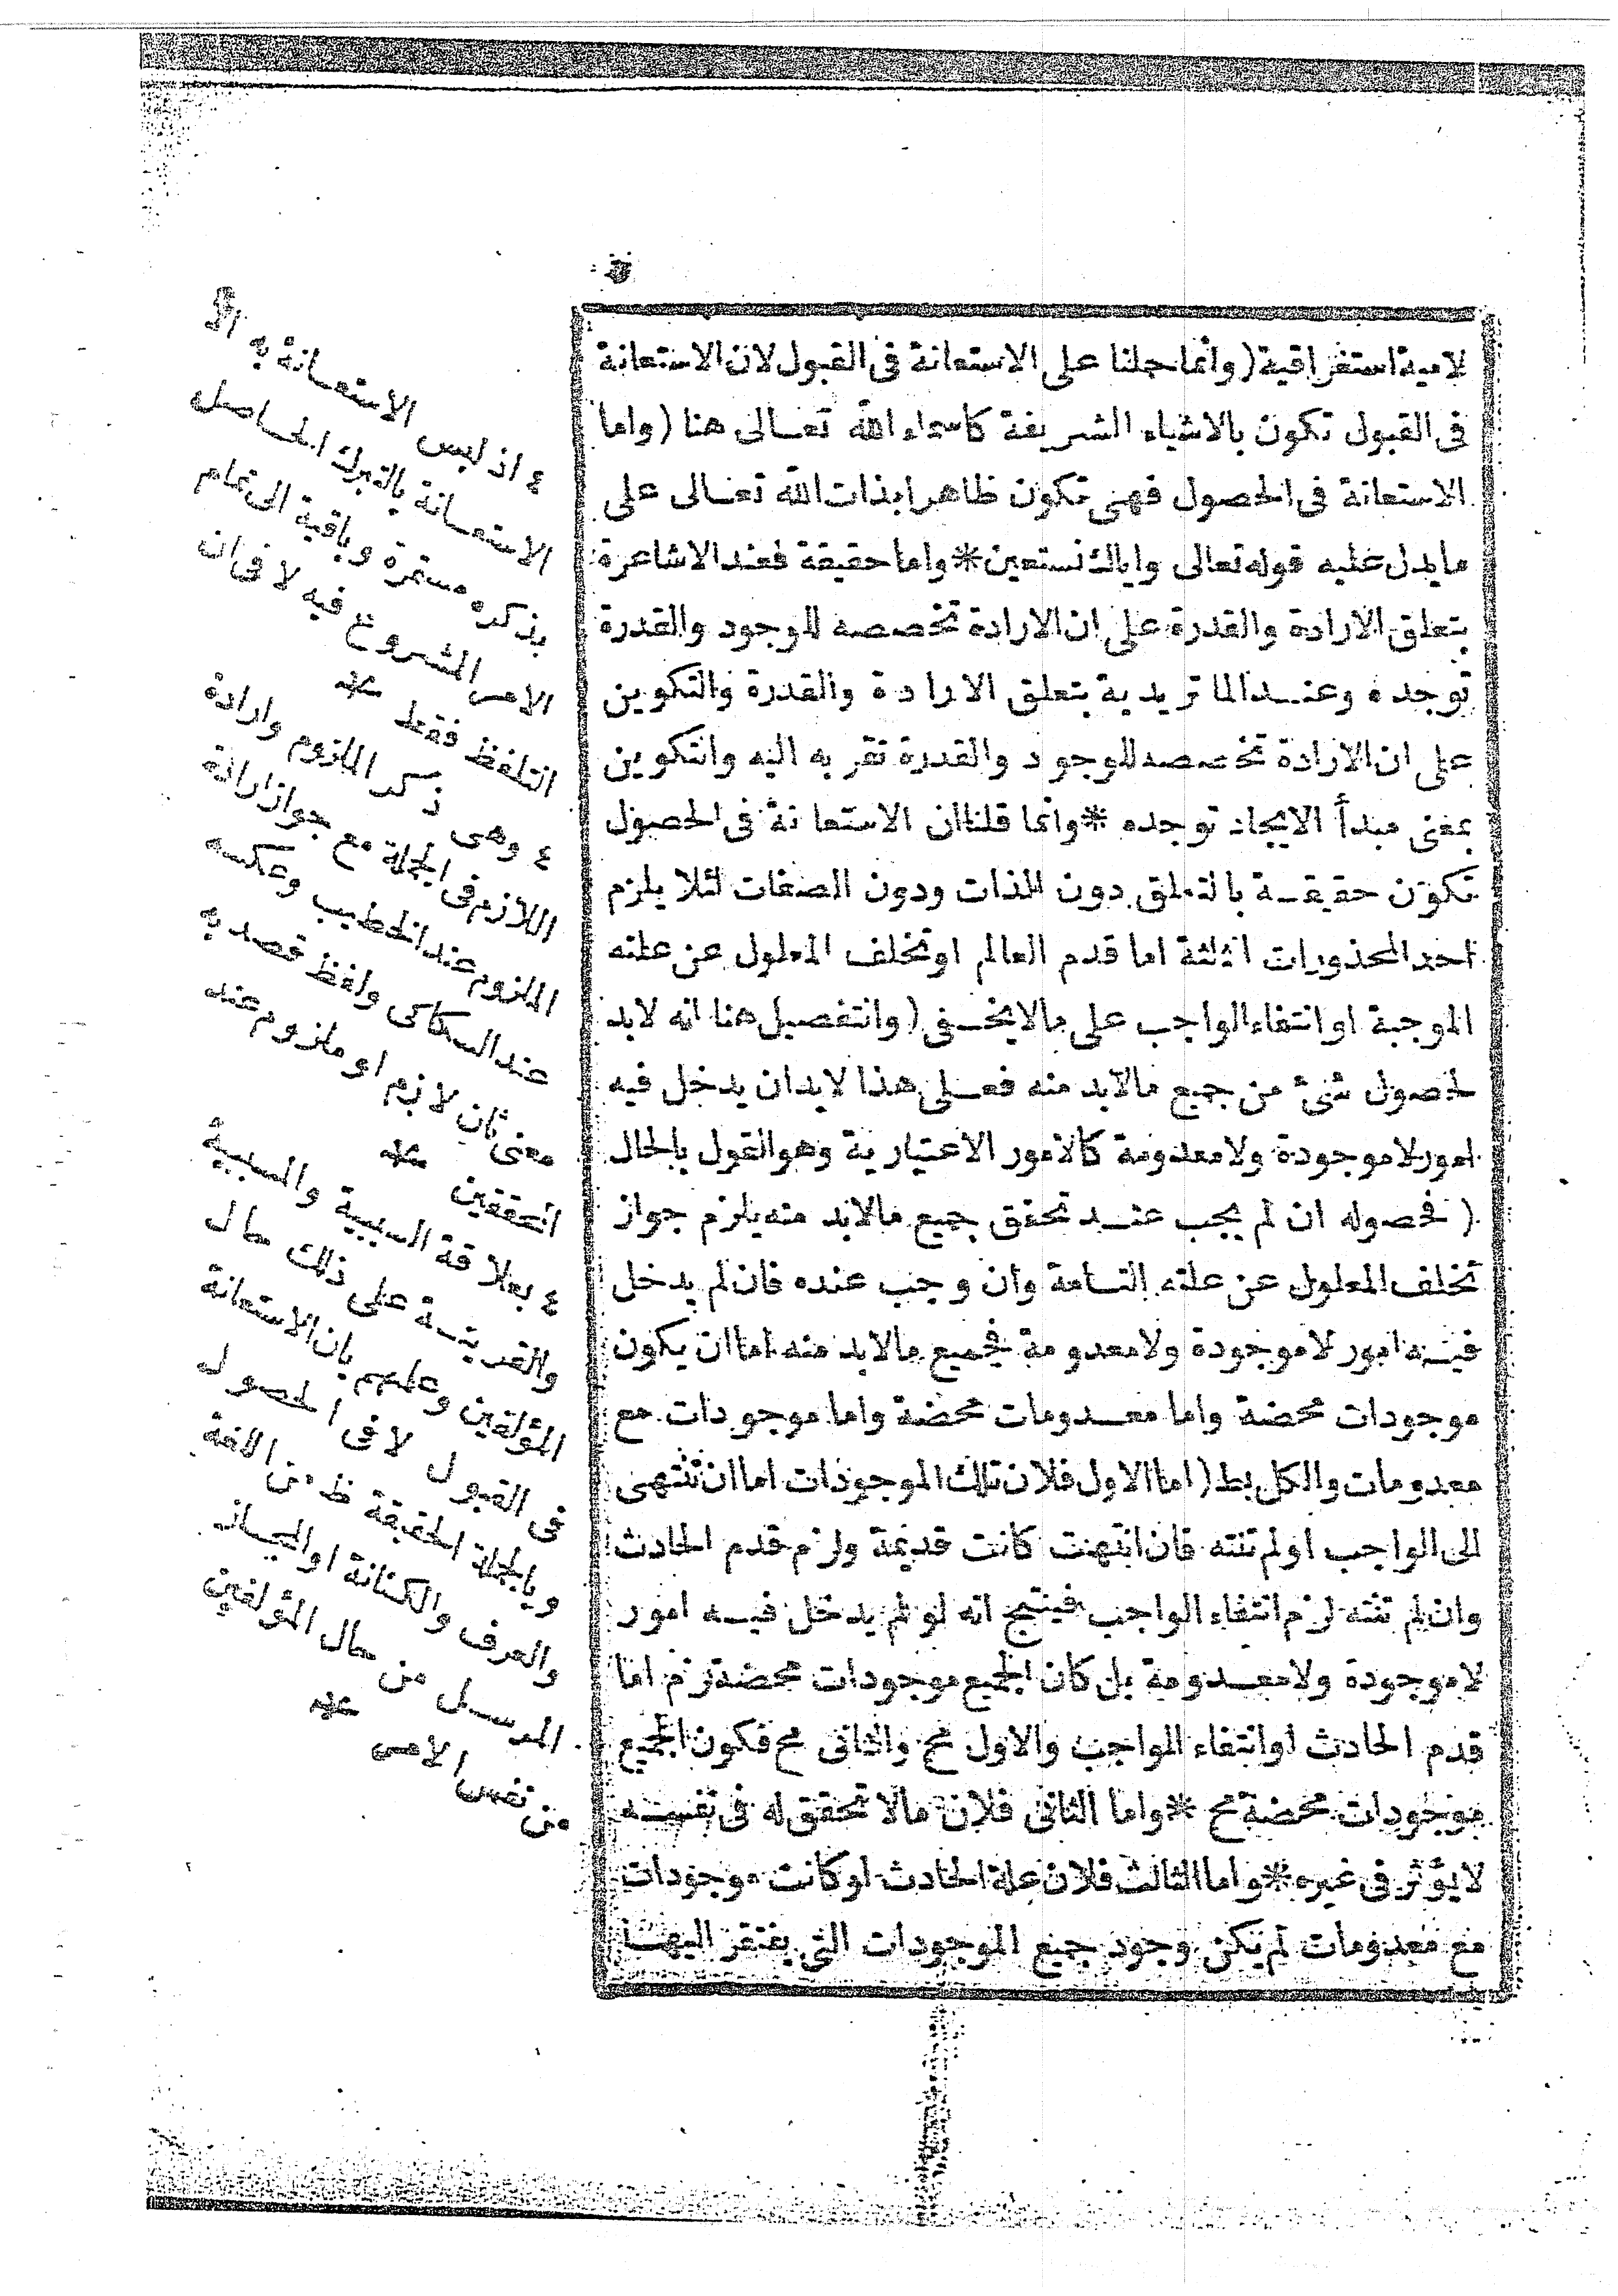 لامية استغراقية (وانما حملنا على الاستعانة فى القبول لان الاستعانة
فى القبول تكون بالاشياء الشريفة كاسماء الله تعالى هنا (واما
الاستعانة فى الحصول فهى تكون ظاهرا بذات الله تعالى على
ما يدل عليه قوله تعالى واياك نستعين * واما حقيقة فعند الاشاعرة
بتعلق الارادة والقدرة على ان الارادة تخصصه للوجود والقدرة
توجده وعند الماتريدية بتعلق الارادة والقدرة والتكوين
على ان الارادة تخصصه للوجود والقدرة تقربه اليه والتكوين
بمعنى مبدأ الايجاد توجده * وانما قلنا ان الاستعانة فى الحصول
تكون حقيقة بالتعلق دون الذات ودون الصفات لئلا يلزم
احد المحذورات الثلثة اما قدم العالم او تخلف المعلول عن علته
الموجبة او انتفاء الواجب على ما لا يخفى (وانتفصيل هنا انه لابد
لحصول شئ من جميع مالابد منه فعلى هذا لابدان يدخل فيه
امور لاموجودة ولامعدومة كالامور الاعتبارية وهو القول بالحال
(فحصوله ان لم يجب عند تحقق جميع مالابد منه يلزم جواز
تخلف المعلول عن علته التامة وان وجب عنده فان لم يدخل
فيه امور لاموجودة ولامعدومة فجميع مالابد منه اما ان يكون
موجودات محضة واما معدومات محضة واما موجودات مع
معدومات والكل بط (اما الاول فلان تلك الموجودات اما ان تنتهى
الى الواجب اولم تنته فان انتهت كانت قديمة ولزم قدم الحادث
وان لم تنته لزم انتفاء الواجب فينتج انه لو لم يدخل فيه امور
لاموجودة ولامعدومة بل كان الجميع موجودات محضة لزم اما
قدم الحادث اوانتفاء الواجب والاول مح والثانى مح فكون الجميع
موجودات محضة مح * واما الثانى فلان مالا تحقق له فى نفسه
لايؤثر فى غيره * واما الثالث فلان علة الحادث لو كانت موجودات
مع معدومات لم يكن وجود جميع الموجودات التى يفتقر اليها
٤ اذ ليس الاستعانة به الا
الاستعانة بالتبرك الحاصله
بذكره مستمرة وباقية الى تمام
الامر المشروع فيه لا فى ان
التلفظ فقط
٤ وهى ذكر الملزوم وارادة
اللازم فى الجملة مع جواز ارادة
الملزوم عند الخطيب وعكسه
عند السكاكى ولفظ قصد به
معنى ثان لازم او ملزوم عند
المحققين
٤ بعلاقة السببية والمسببية
والقرينة على ذلك حال
المؤلفين وعلمهم بان الاستعانة
فى القبول لا فى الحصول
وبالجملة الحقيقة
والعرف والكناية او المجاز
المرسل من حال المؤلفين
من نفس الامر